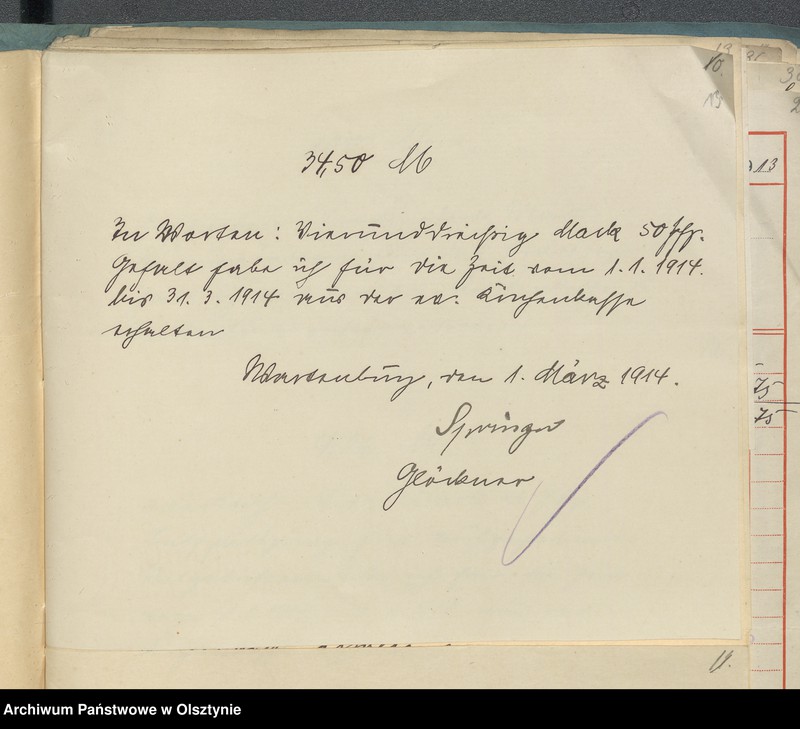 10.
13
34,50 M
In Worten: Vierunddreißig Mark 50 Pfg.
Gehalt habe ich für die Zeit vom 1.1.1914.
bis 31.3.1914 aus der ev. Kirchenkasse
erhalten
Wartenburg, den 1. März 1914.
Springer
Glöckner
13
75
75
11.
Archiwum Państwowe w Olsztynie